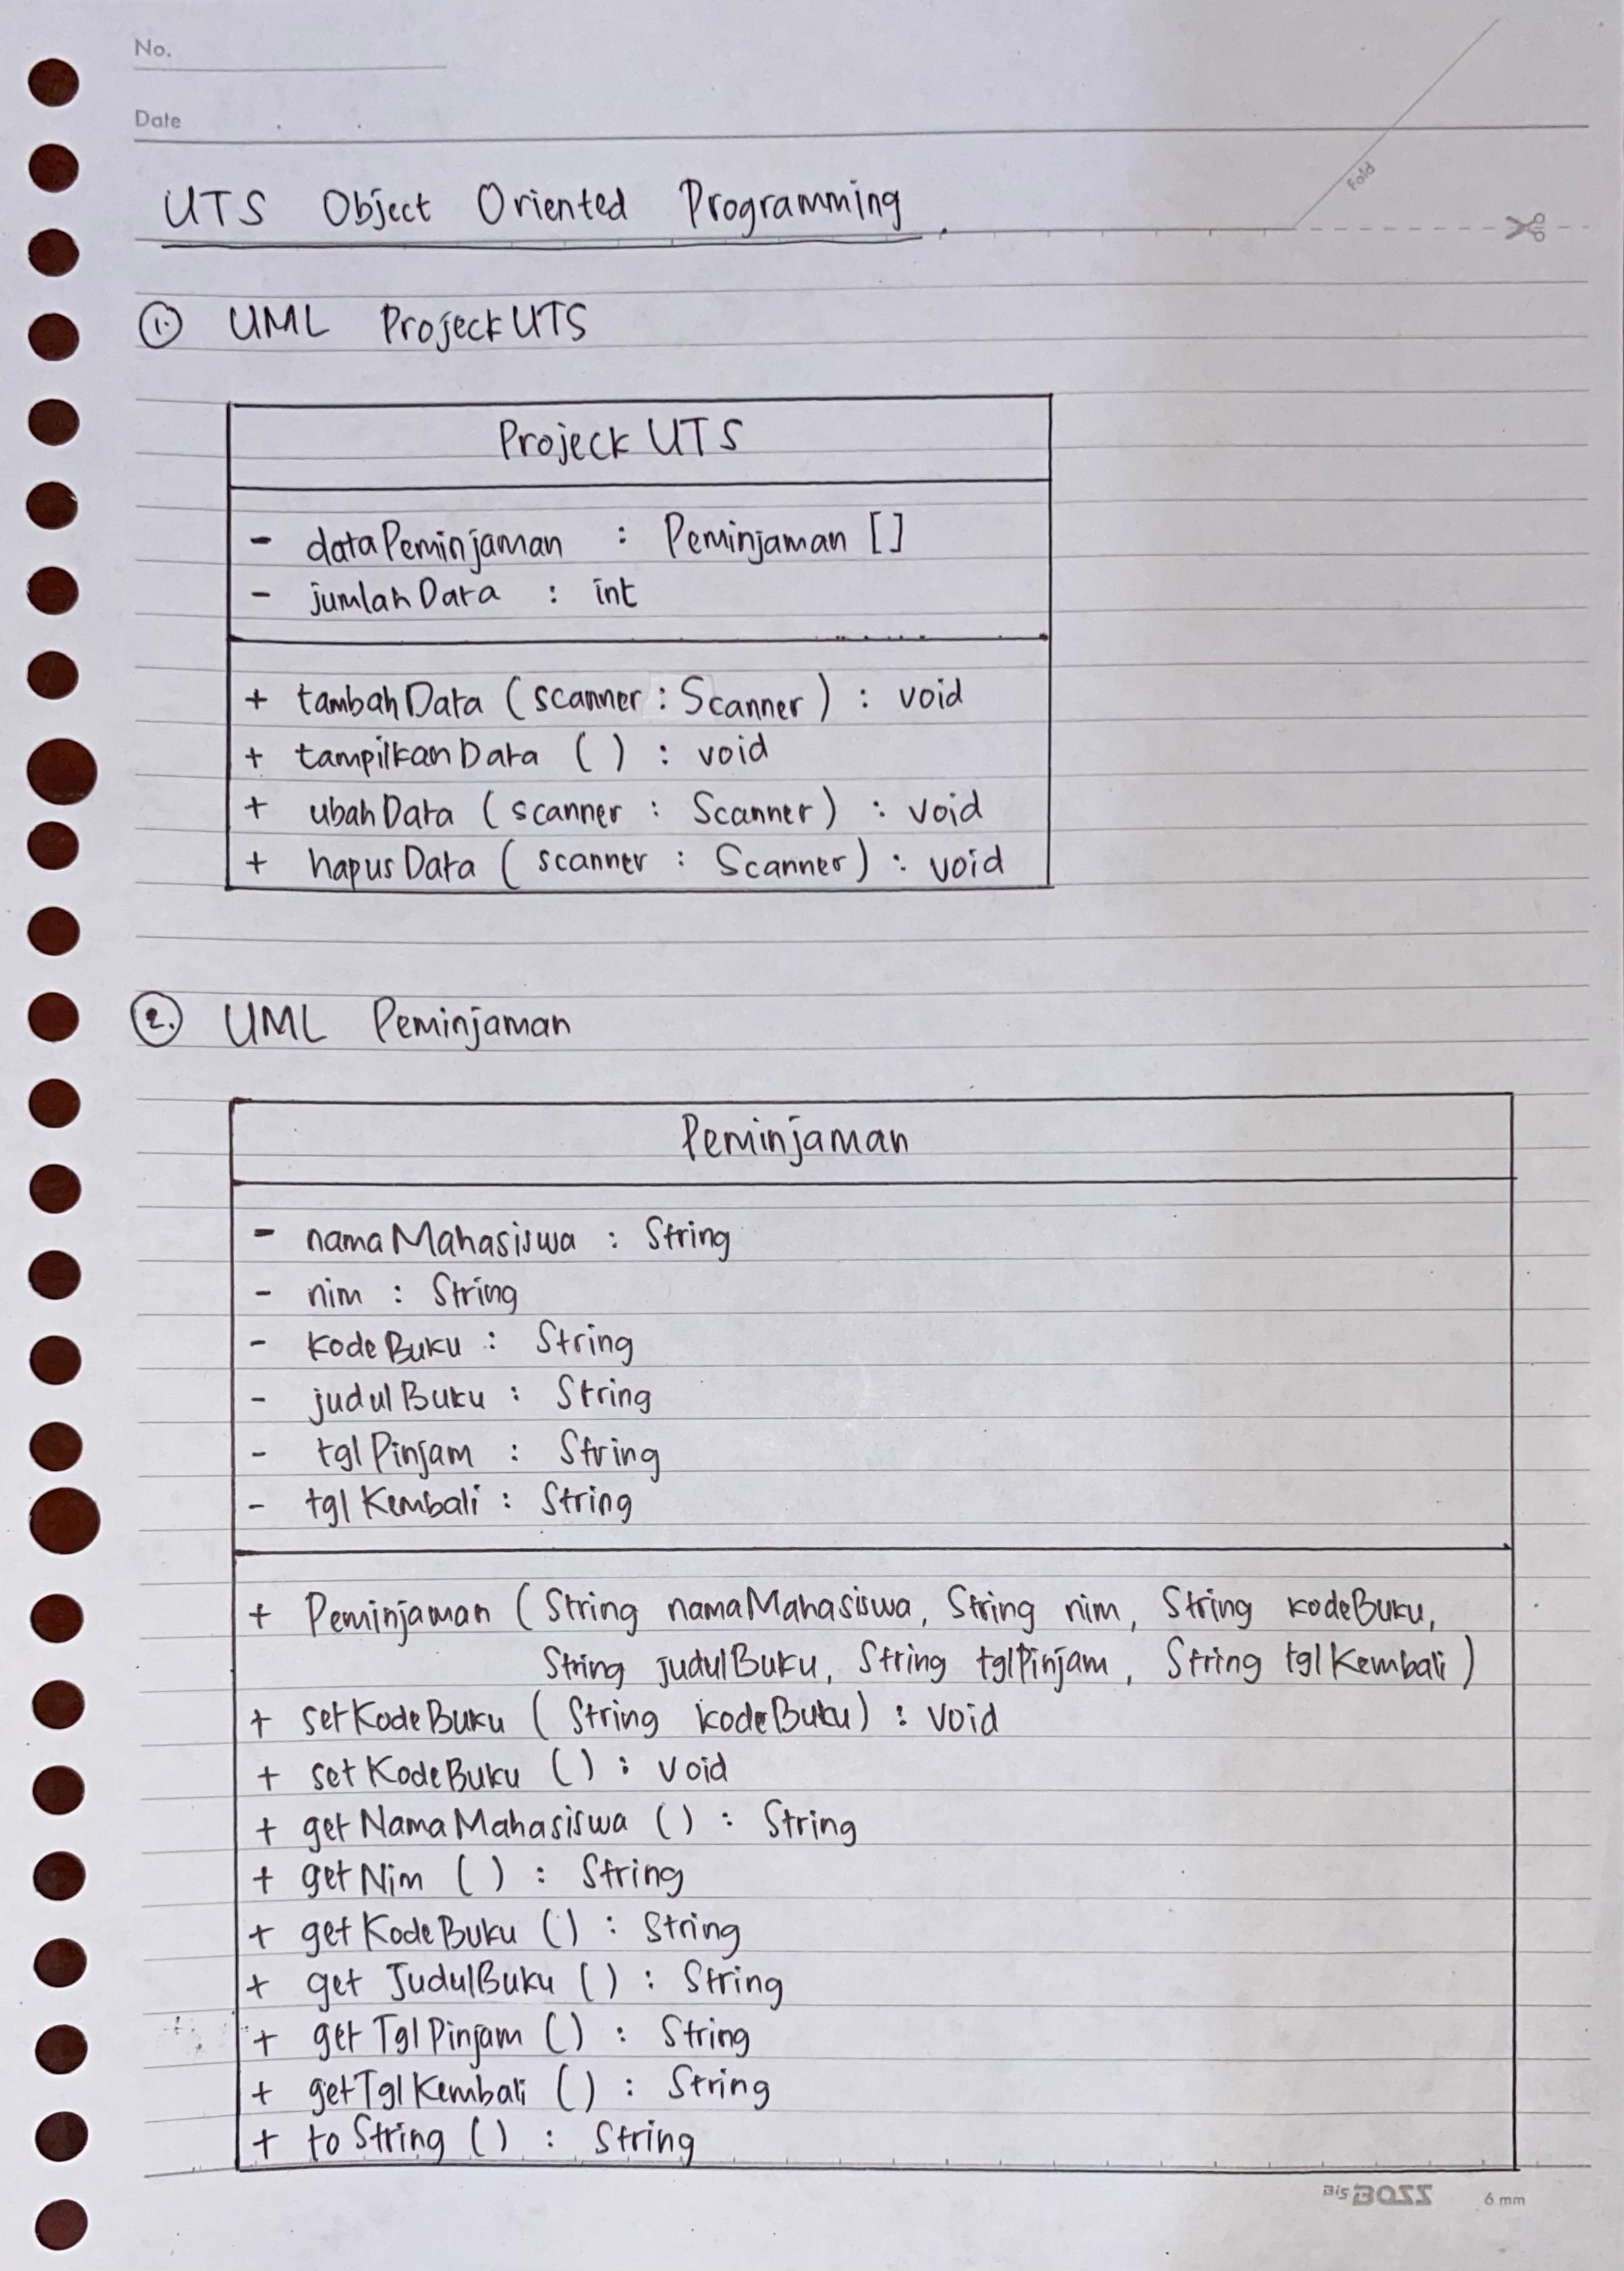 No.
Date
Fold
UTS Object Oriented Programming
1. UML ProjeckUTS
Projeck UTS
- dataPeminjaman : Peminjaman []
- jumlahData : int
+ tambahData (scanner : Scanner) : void
+ tampilkanData () : void
+ ubahData (scanner : Scanner) : void
+ hapusData (scanner : Scanner) : void
2. UML Peminjaman
Peminjaman
- namaMahasiswa : String
- nim : String
- kodeBuku : String
- judulBuku : String
- tglPinjam : String
- tglKembali : String
+ Peminjaman (String namaMahasiswa, String nim, String kodeBuku,
String judulBuku, String tglPinjam, String tglKembali)
+ setKodeBuku (String kodeBuku) : void
+ setKodeBuku () : void
+ getNamaMahasiswa () : String
+ getNim () : String
+ getKodeBuku () : String
+ get JudulBuku () : String
+ get TglPinjam () : String
+ getTglKembali () : String
+ toString () : String
Bis BOSS 6 mm